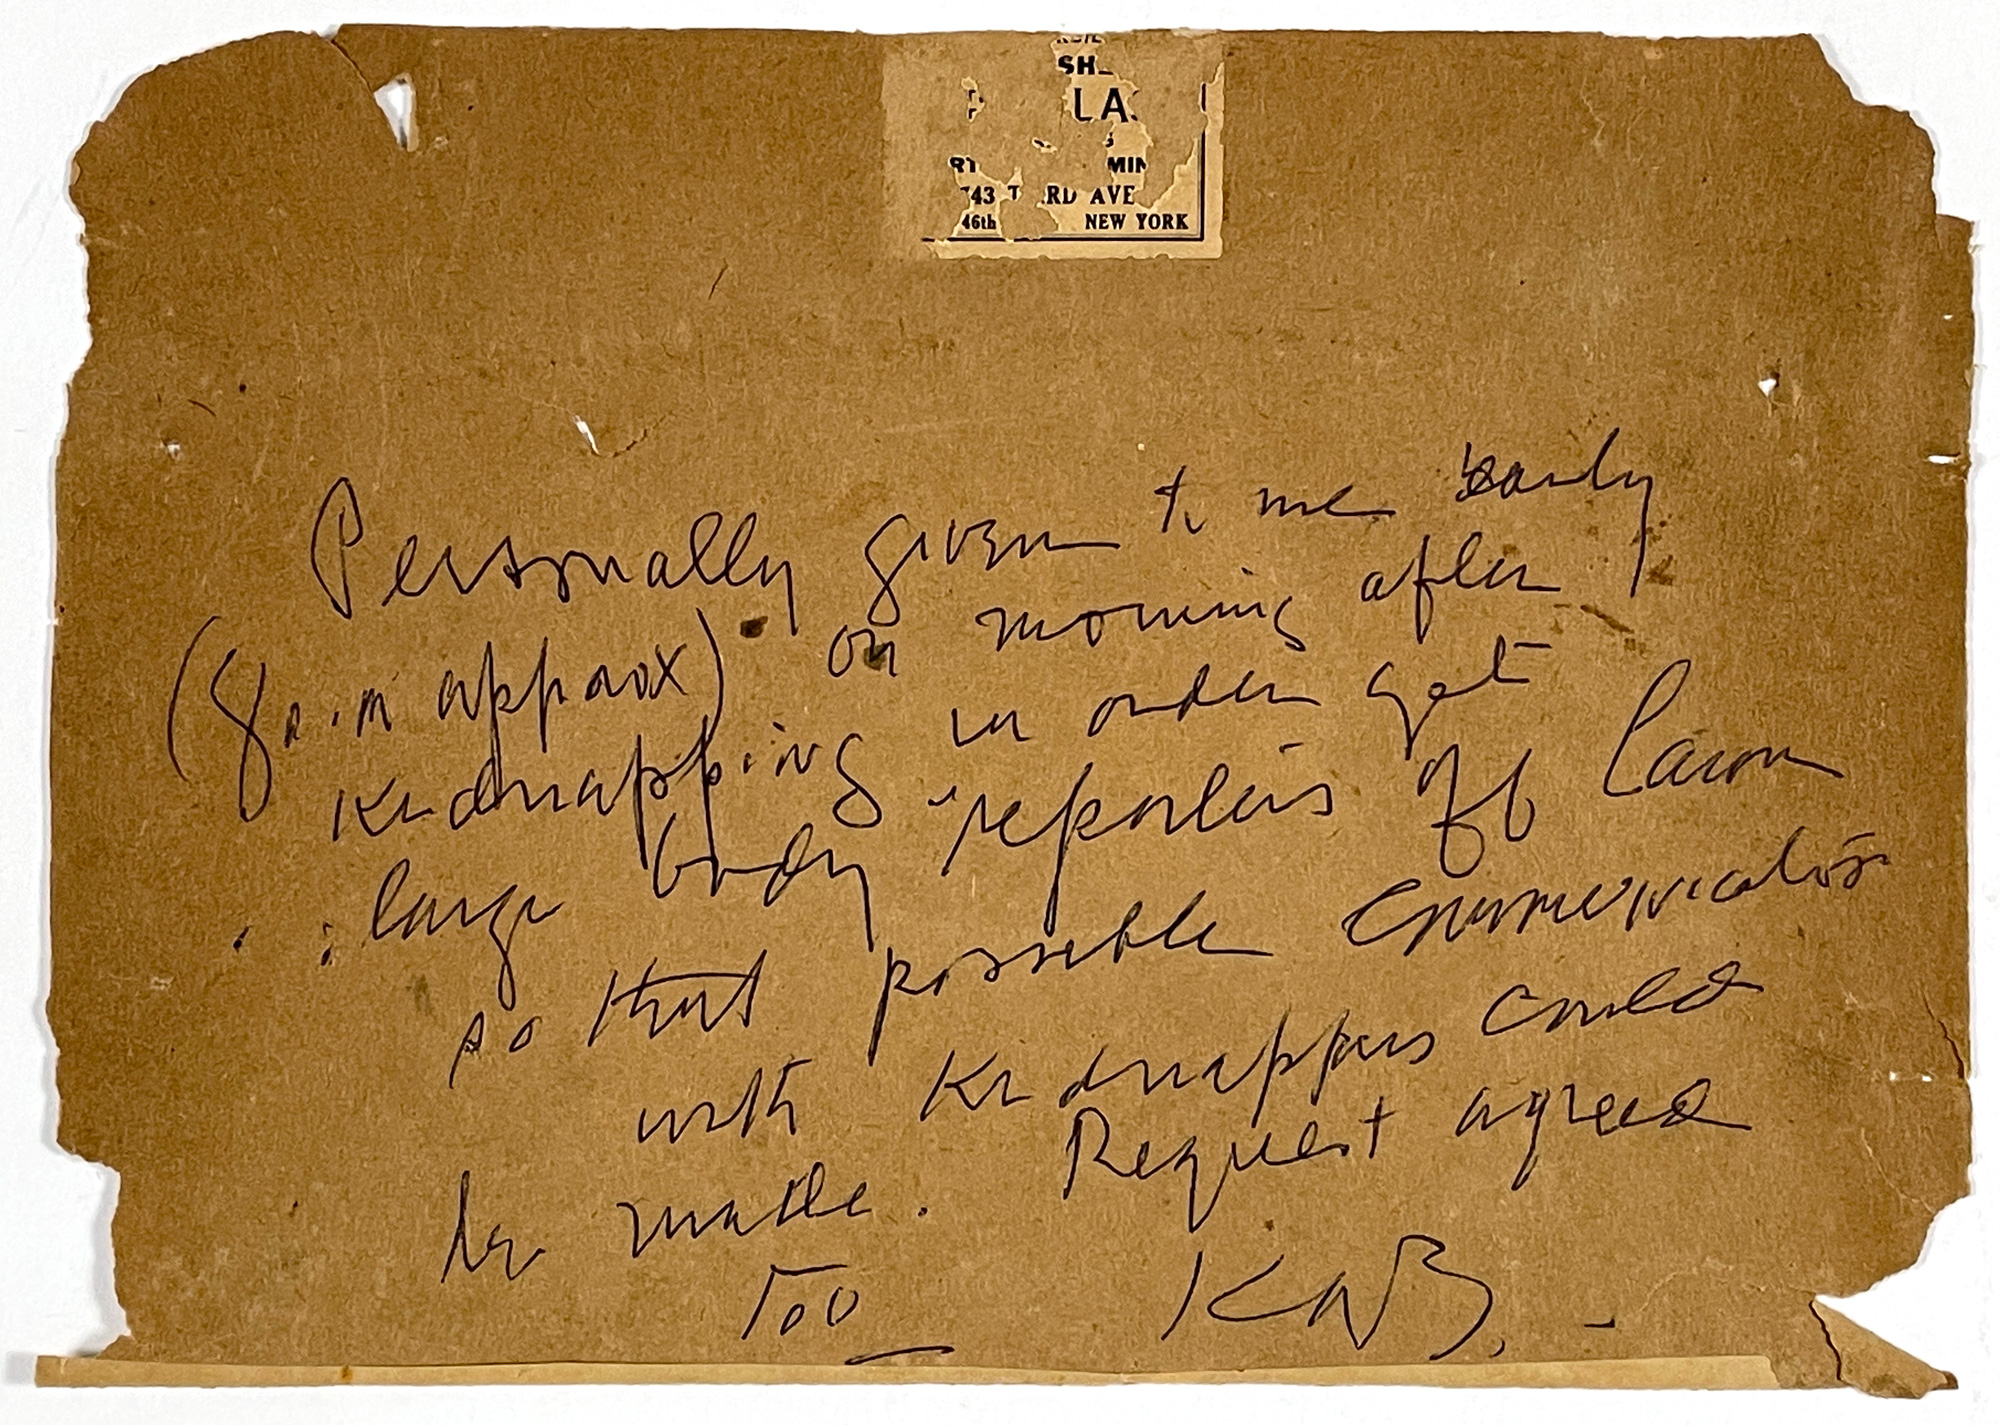 SH
LA
RT MIN
743 T RD AVE
46th NEW YORK
Personally given to me early
(8 a.m approx) on morning after
kidnapping in order get
large body reporters off lawn
so that possible communication
with kidnappers could
be made. Request agreed
too
KWB.